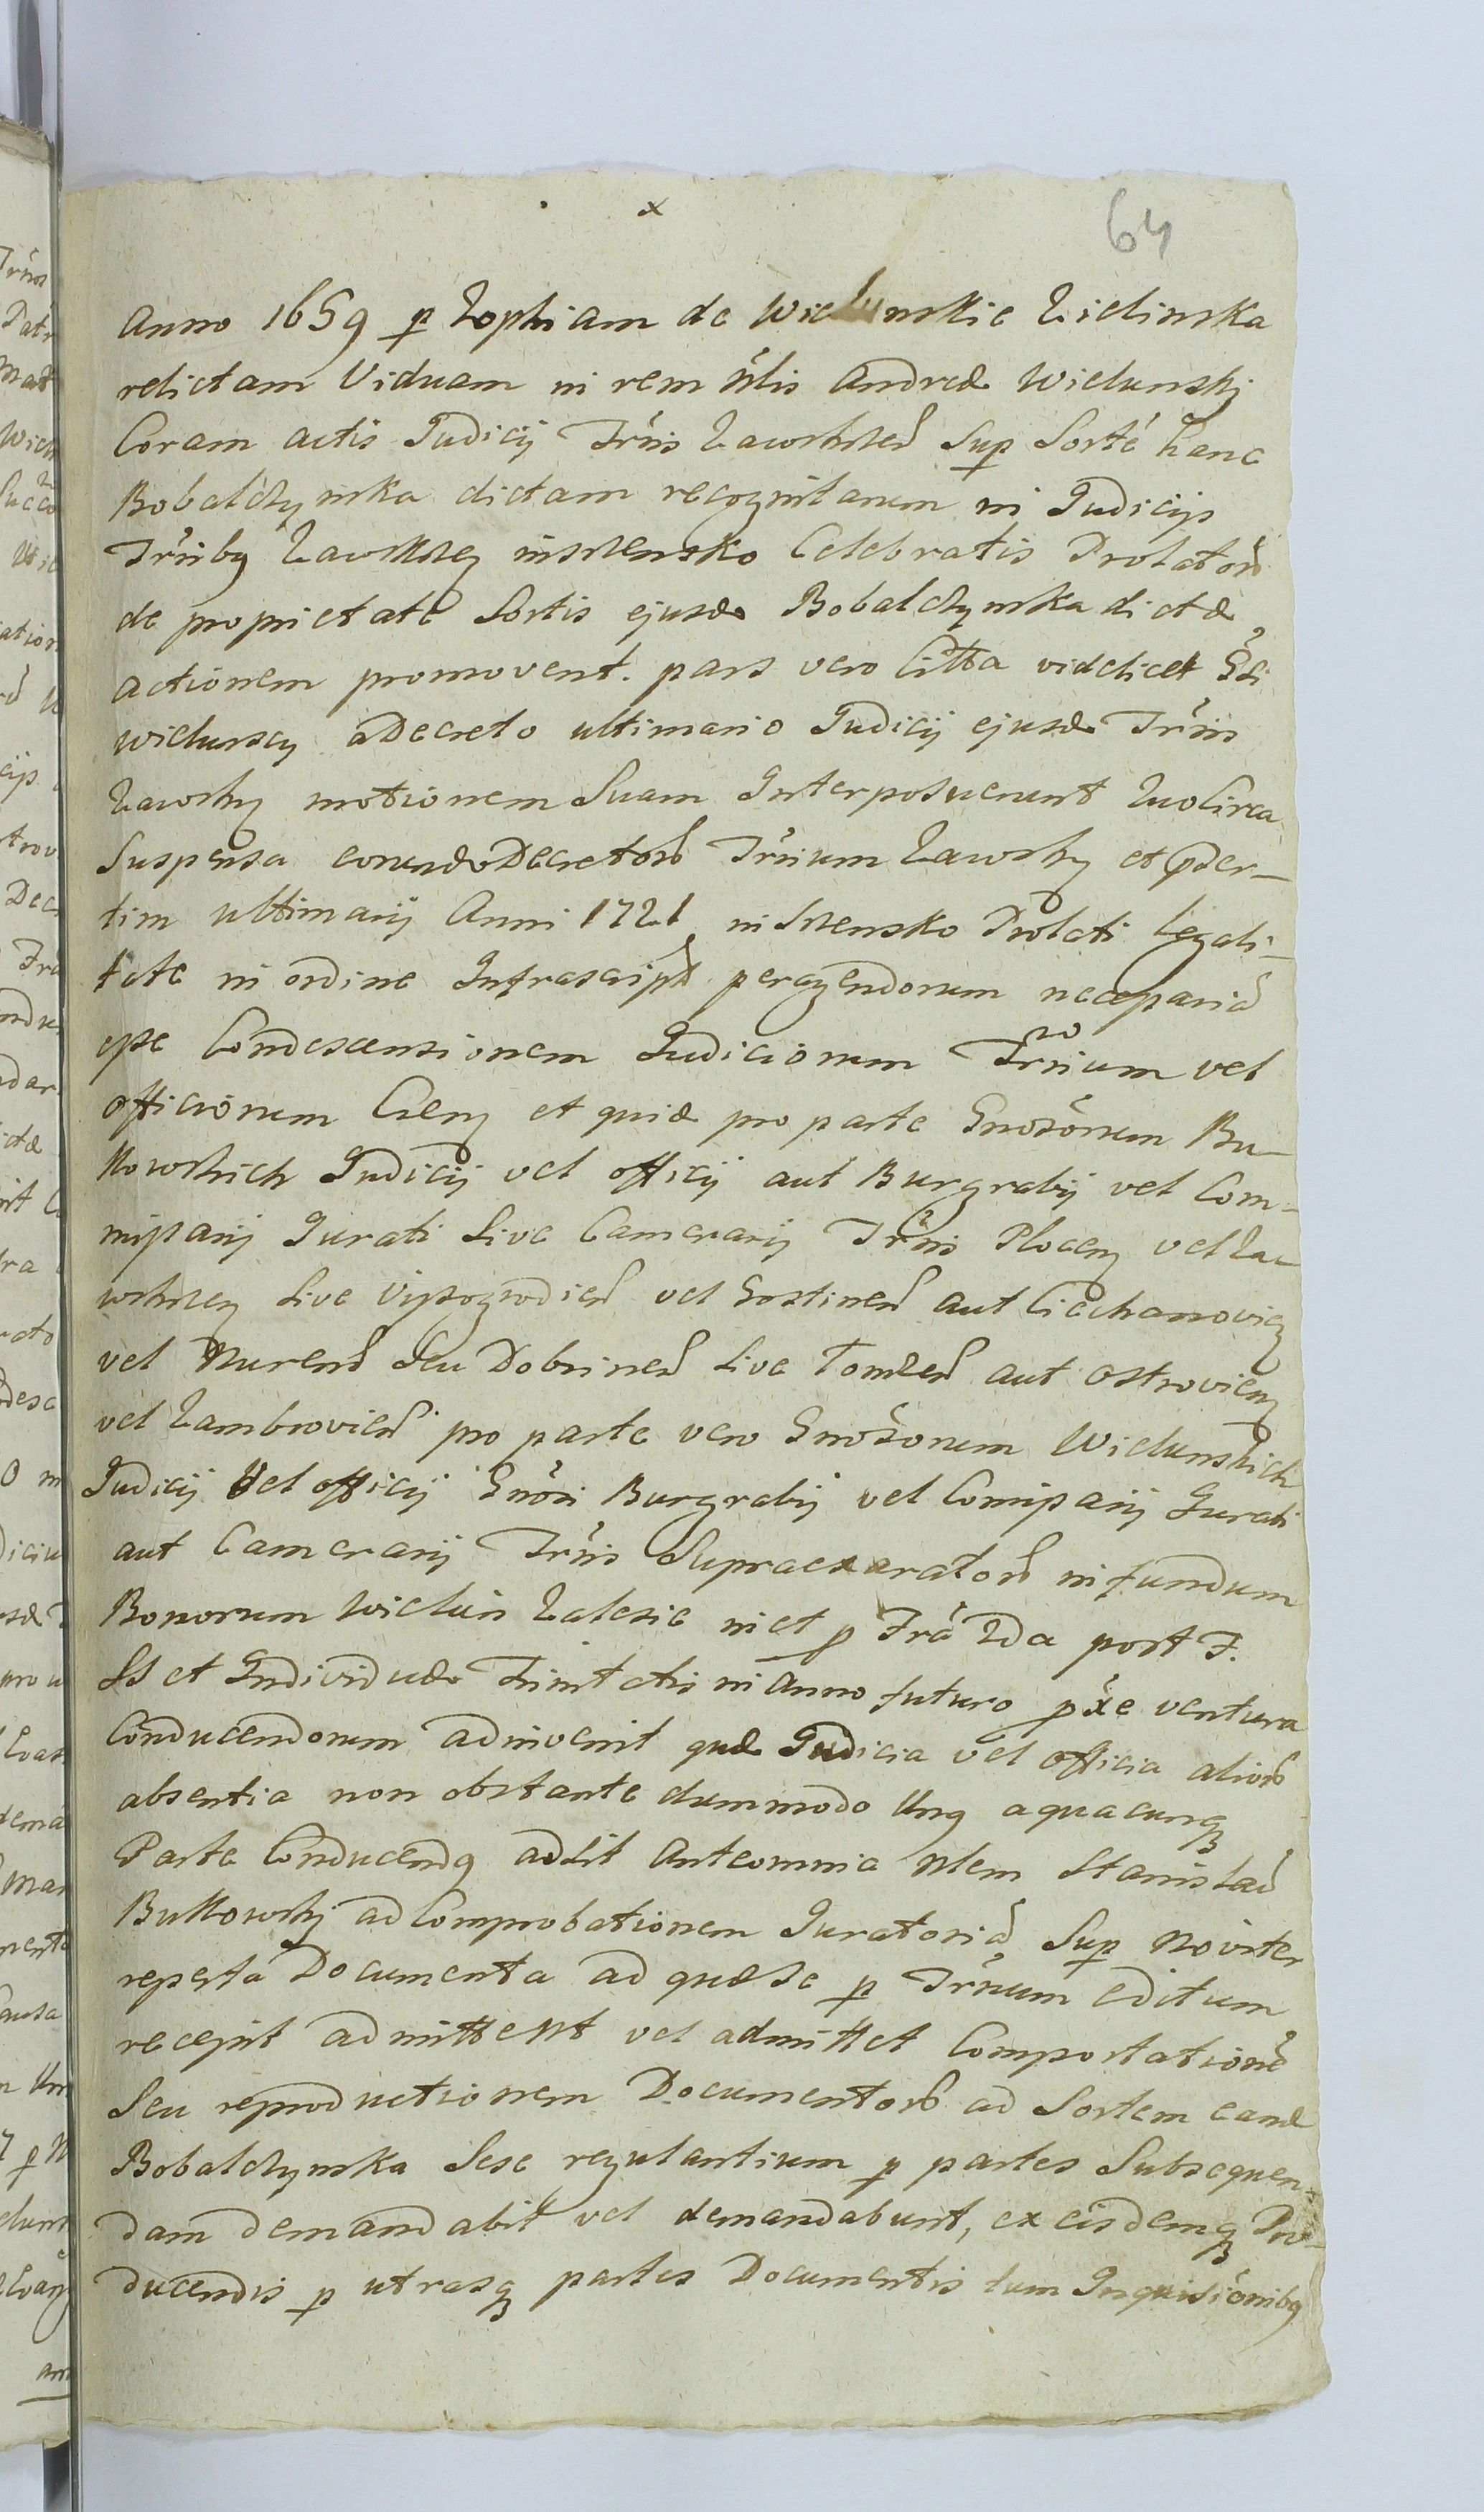 x
64
Anno 1659 p Zophiam de Wielunskie Zielinska
relictam Viduam in rem Nlis Andreæ Wielunski
Coram actis Judicij Trris Zawskrzen Sup Sorte hanc
Bobalczynska dictam recognitarum in Judicijs
Trribq Zawskrzen in Srensko Celebratis Prolator
de proprietate Sortis ejusd Bobalczynska dictæ
actionem promovent. pars vero Citta videlicet Gsi
Wielunscy a Decreto ultimario Judicij ejusd Trris
Zawskrz motionem Suam Interposuerunt Quo Circa
Suspensa eorund Decretor Trrium Zawskrz et pser-
tim ultimarij Anni 1721 in Srensko Prolati legali-
tate in ordine Infrascript peragendorum necessaria
esse Condescensionem Judiciorum Trrium vel
officiorum Cren et quid pro parte Gnosorum Bu-
tkowskich Judicij vel officij aut Burgrabij vel Com-
missarij Jurati Sive Camerarij Trris Plocen vel Za-
wskrzen Sive Vyszogrodien vel Gostinen aut Ciechanovien
vel Nuren Seu Dobrinen Sive Lomzen aut Ostrovien
vel Zambrovien pro parte vero Gnosorum Wielunskich
Judicij Vel officij Gnosi Burgrabij vel Comissarij Jurati
aut Camerarij Trris Supraexarator in fundum
Bonorum Wielun Zalesie in et p Fra 2da post F.
SS et Individuæ Trinitatis in Anno futuro pxe ventura
Conducendorum adinvenit quæ Judicia vel officia alior
absentia non obstante dummodo Unq a quacunq
Parte Conducendq adsit Anteomnia Nlem Stanislau
Butkowski ad Comprobationem Juratoria Sup Noviter
reperta Documenta ad quæ se p Trrium editum
recepit admittent vel admittet Comportatione
Seu reproductionem Documentor ad Sortem eand
Bobalczynska Sese regulantium p partes Subsequen-
dam demandabit vel demandabunt, ex eisdemq Pro-
ducendis p utrasq partes Documentis tum Inquisionibq